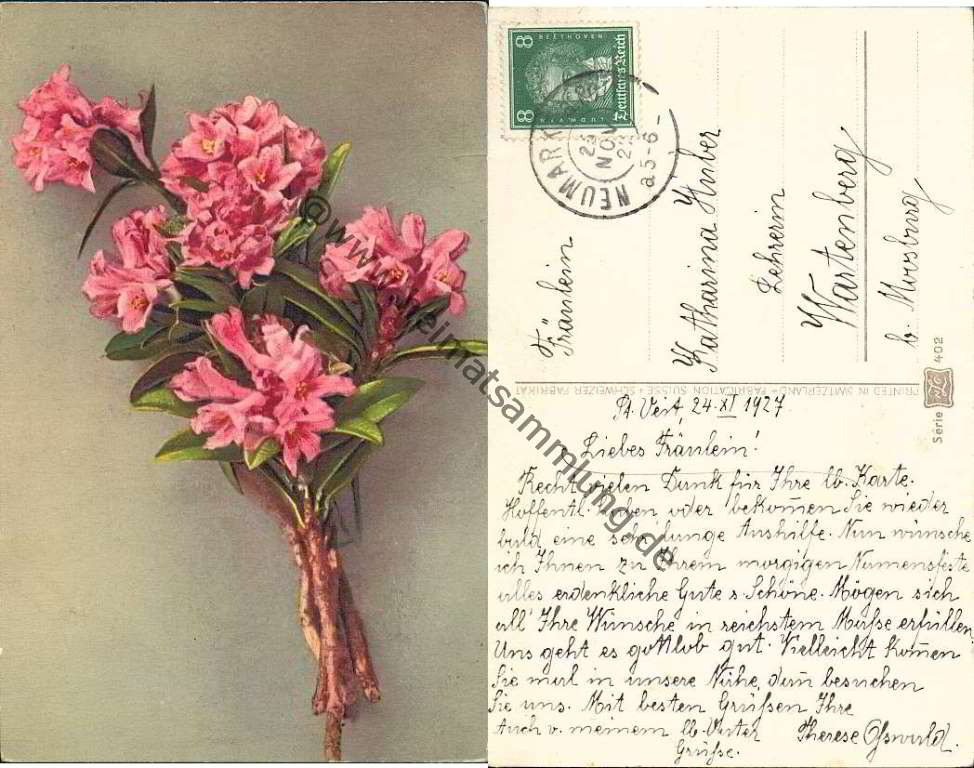 @www.heimatsammlung.de
8 BEETHOVEN 8
Deutsches Reich
LUDW.V.
NEUMARK
NOV
a 5-6-
Fräulein
Katharina Huber
Lehrerin
Wartenberg
b. Moosburg
Série 402
PRINTED IN SWITZERLAND • FABRICATION SUISSE • SCHWEIZER FABRIKAT
St. Veit, 24. XI 1927
Liebes Fräulein!
Recht vielen Dank für Ihre lb. Karte.
Hoffentl. haben oder bekom̄en Sie wieder
bald eine sehr lange Aushilfe. Nun wünsche
ich Ihnen zu Ihrem morgigen Namensfeste
alles erdenkliche Gute u Schöne. Mögen sich
all' Ihre Wünsche in reichstem Maße erfüllen.
Uns geht es gottlob gut. Vielleicht kom̄en
Sie mal in unsere Nähe, dann besuchen
Sie uns. Mit besten Grüßen Ihre
Auch v. meinem lb. Vater Therese Oßwald.
Grüße.